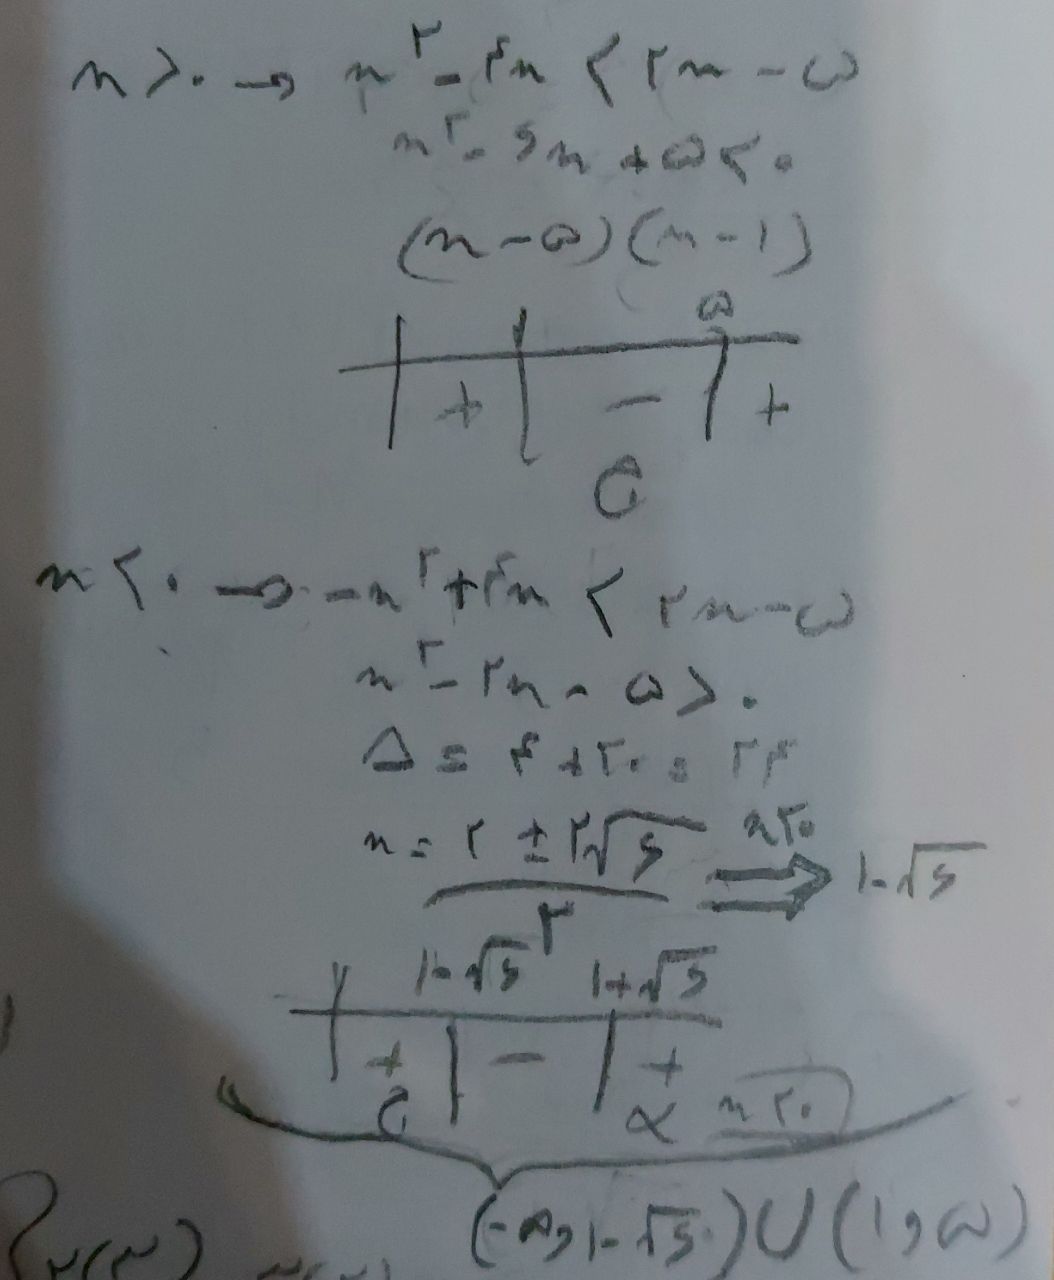 x > ۰ → x^۲ - ۴x < ۲x - ۵
x^۲ - ۶x + ۵ < ۰
(x - ۵)(x - ۱)
۱ ۵
+ - +
ج
x < ۰ → -x^۲ + ۴x < ۲x - ۵
x^۲ - ۲x - ۵ > ۰
Δ = ۴ + ۲۰ = ۲۴
x = (۲ ± ۲√۶) / ۲ x < ۰ ⇒ ۱ - √۶
۱ - √۶ ۱ + √۶
+ - +
ج x < ۰
(-∞ و ۱ - √۶) ∪ (۱ و ۵)